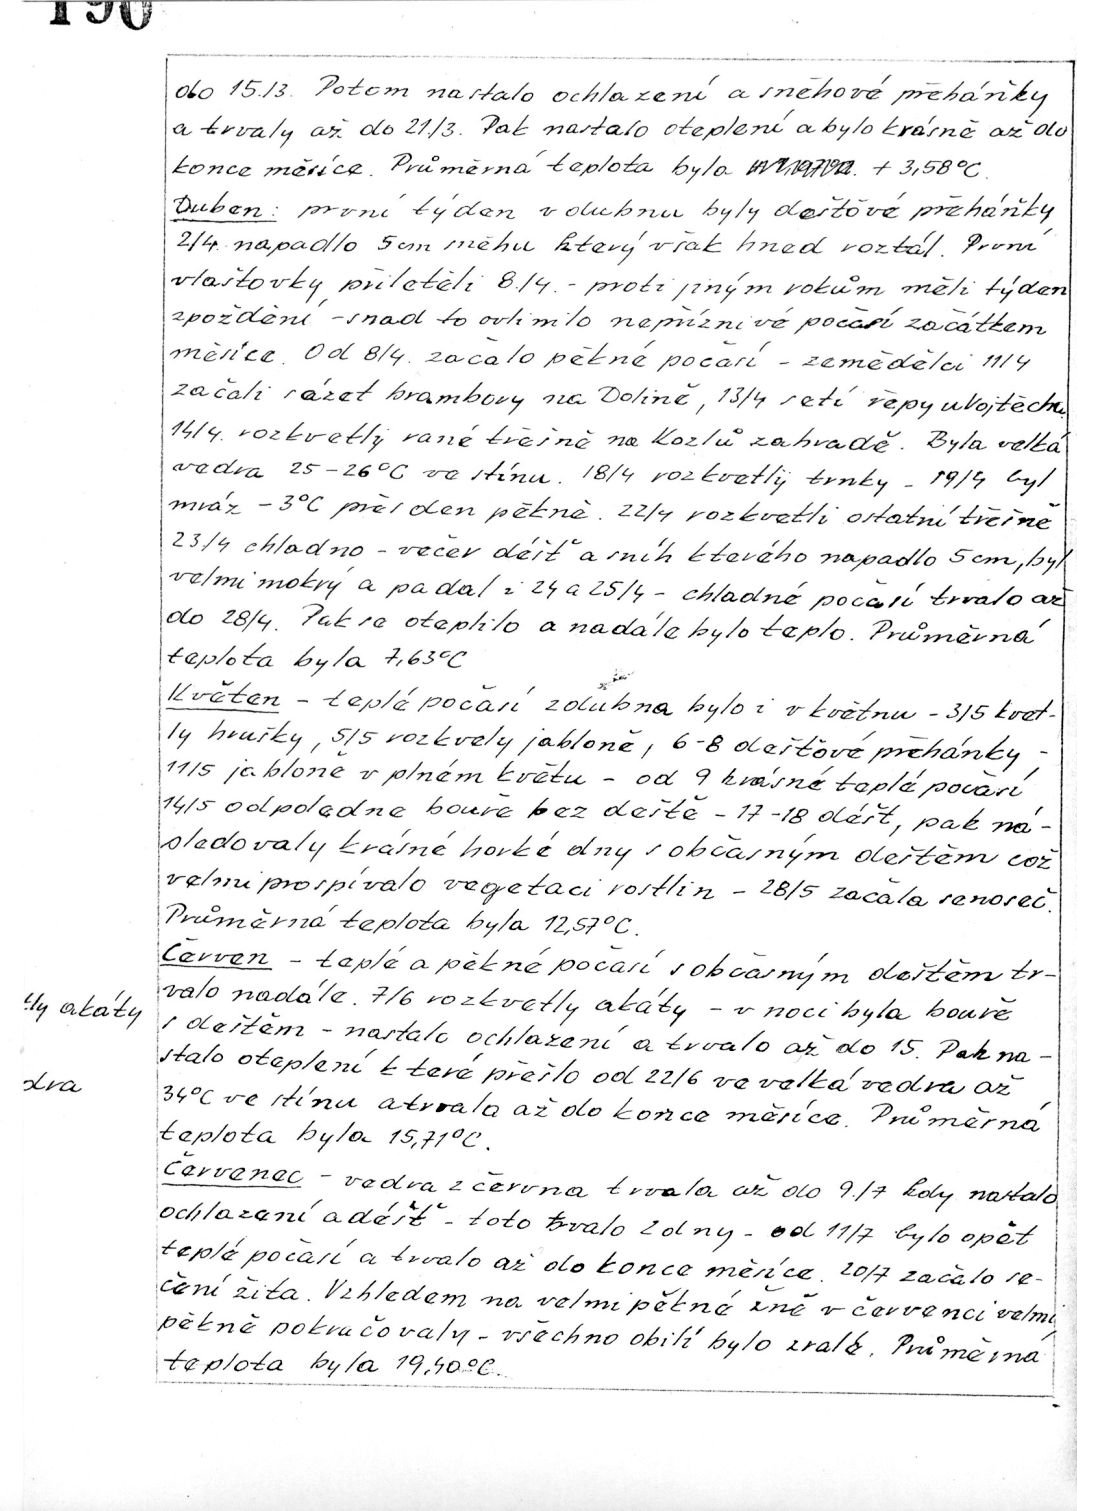 190
do 15.13. Potom nastalo ochlazení a sněhové přeháňky
a trvaly až do 21/3. Pak nastalo oteplení a bylo krásně až do
konce měsíce. Průměrná teplota byla + 3,58°C.
Duben: první týden v dubnu byly dešťové přeháňky
2/4. napadlo 5cm sněhu který však hned roztál. První
vlaštovky přiletěli 8./4. - proti jiným rokům měli týden
zpoždění - snad to ovlinilo nepříznivé počasí začátkem
měsíce. Od 8/4. začalo pěkné počasí - zemědělci 11/4
začali sázet brambory na Dolině, 13/4 setí řepy u Vojtěcha.
14/4. rozkvetly rané třešně na Kozlů zahradě. Byla velká
vedra 25-26°C ve stínu. 18/4 rozkvetly trnky - 19/4 byl
mráz - 3°C přes den pěkně. 22/4 rozkvetli ostatní třešně
23/4 chladno - večer déšť a sníh kterého napadlo 5cm, byl
velmi mokrý a padal i 24 a 25/4 - chladné počasí trvalo až
do 28/4. Pak se oteplilo a nadále bylo teplo. Průměrná
teplota byla 7,63°C
Květen - teplé počasí z dubna bylo i v květnu - 3/5 kvet-
ly hrušky, 5/5 rozkvely jabloně, 6-8 dešťové přehánky -
11/5 jabloně v plném květu - od 9 krásné teplé počasí
14/5 odpoledne bouře bez deště - 17-18 déšť, pak ná-
sledovaly krásné horké dny s občasným deštěm což
velmi prospívalo vegetaci rostlin - 28/5 začala senoseč.
Průměrná teplota byla 12,57°C.
Červen - teplé a pěkné počasí s občasným deštěm tr-
valo nadále. 7/6 rozkvetly akáty - v noci byla bouře
tly akáty
s deštěm - nastalo ochlazení a trvalo až do 15. Pak na-
stalo oteplení které přešlo od 22/6 ve velká vedra až
dra
34°C ve stínu a trvala až do konce měsíce. Průměrná
teplota byla 15,71°C.
Červenec - vedra z června trvala až do 9./7 kdy nastalo
ochlazení a déšť - toto trvalo 2 dny - od 11/7 bylo opět
teplé počasí a trvalo až do konce měsíce. 20/7 začalo se-
čení žita. Vzhledem na velmi pěkné žně v červenci velmi
pěkně pokračovaly - všechno obilí bylo zralé. Průměrná
teplota byla 19,40°C.